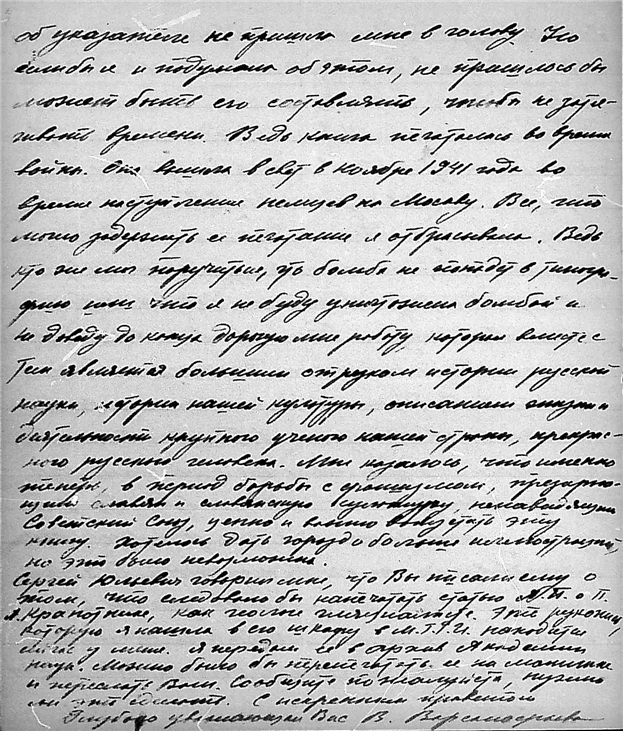 об указателе не пришла мне в голову. Но
если бы я и подумала об этом, не пришлось бы
может быть его составлять, чтобы не затя-
гивать времени. Ведь книга печаталась во время
войны. Она вышла в свет в ноябре 1941 года во
время наступления немцев на Москву. Все, что
могло задержать ее печатание я отбрасывала. Ведь
кто же мог поручиться, что бомба не попадет в типогра-
фию или что я не буду уничтожена бомбой и
не доведу до конца дорогую мне работу, которая вместе с
тем является большим отрезком истории русской
науки, истории нашей культуры, описанием жизни и
деятельности крупного ученого нашей страны, прекрас-
ного русского человека. Мне казалось, что именно
теперь, в период борьбы с фашизмом, презираю-
щим славян и славянскую культуру, ненавидящим
Советский Союз, ценно и важно выпустить эту
книгу. Хотелось дать гораздо больше иллюстраций,
но это было невозможно.
Сергей Юльевич говорил мне, что Вы писали ему о
том, что следовало бы напечатать статью А.П. о П.
А. Кропоткине, как геологе . Эту рукопись,
которую я нашла в его шкафу в М.Г.Р.И. находится
сейчас у меня. Я передам ее в архив Академии
наук. Можно было бы перепечатать ее на машинке
и переслать Вам. Сообщите пожалуйста, нужно
ли это сделать. С искренним приветом
Глубоко уважающая Вас В.